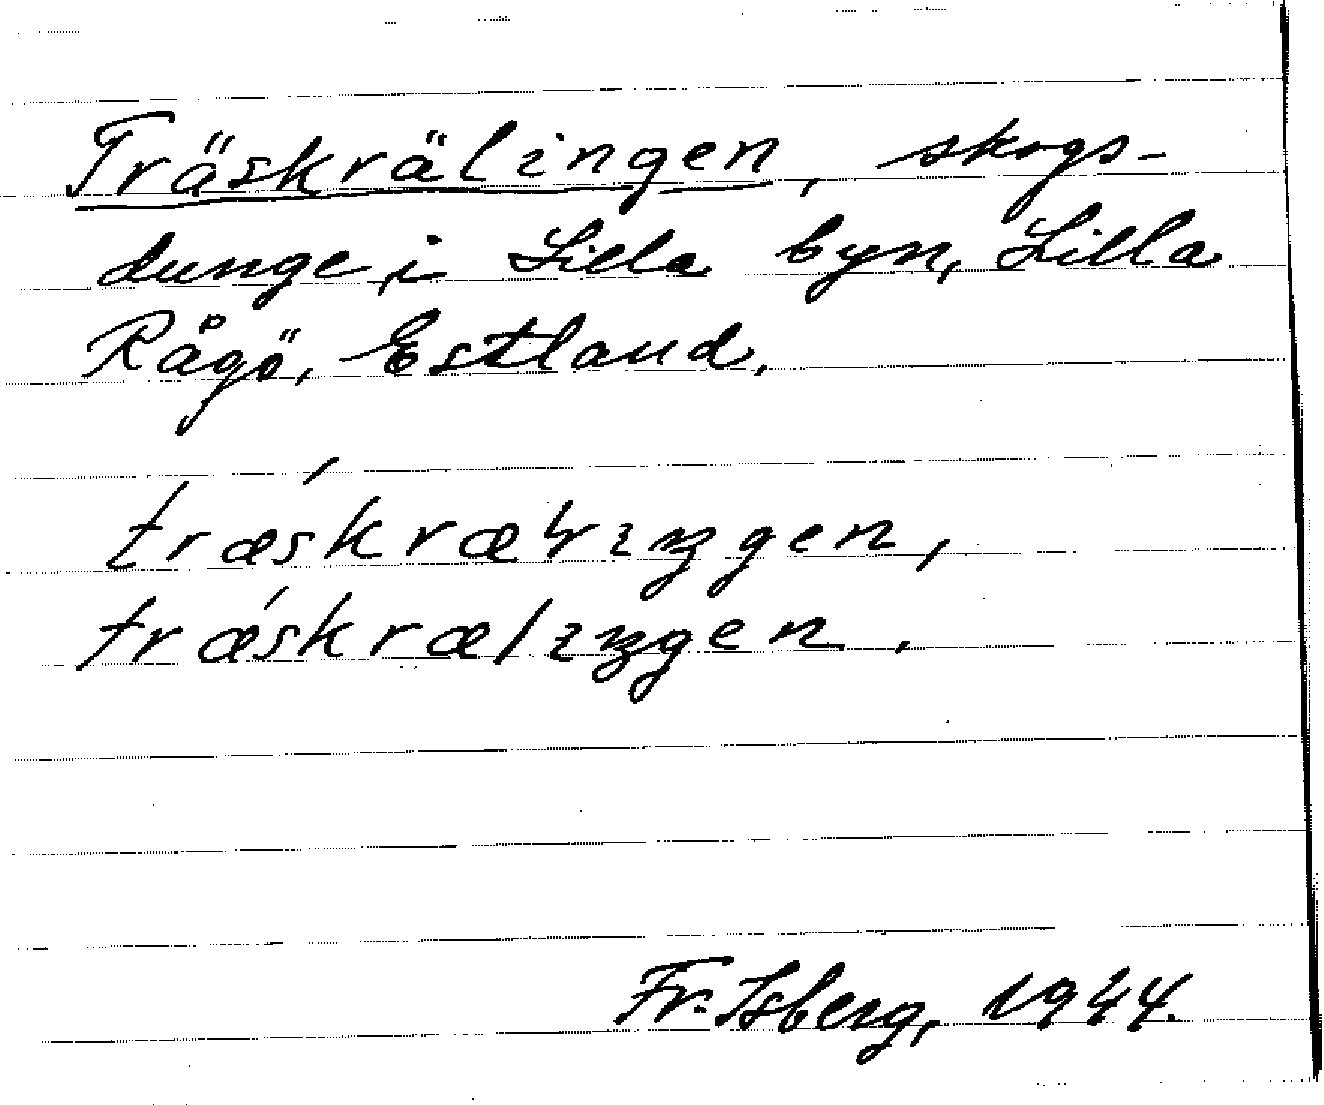 Träskrälingen, skogs-
dunge i Lilla byn, Lilla
Rågö, Estland.
træskrælıŋgen,
træskrælıŋgen.
Fr. Isberg, 1944.